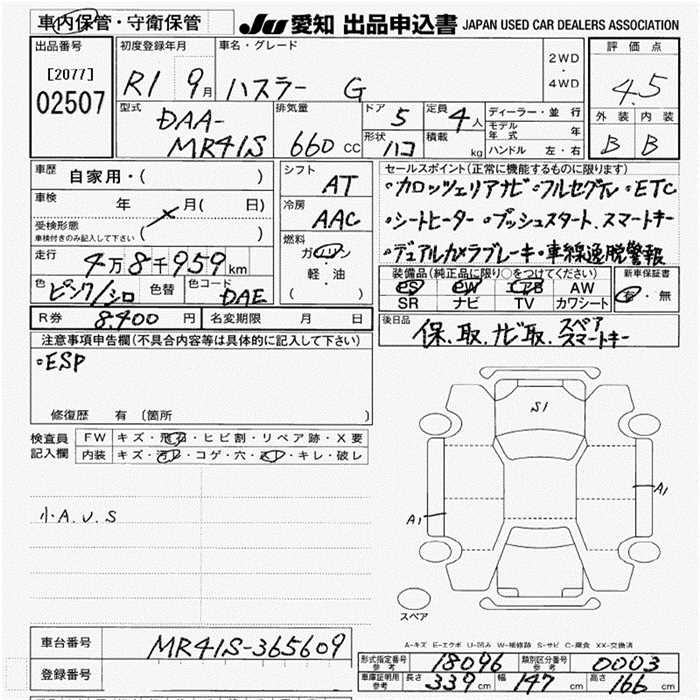 車内保管・守衛保管
JU 愛知 出品申込書 JAPAN USED CAR DEALERS ASSOCIATION
出品番号 初度登録年月 車名・グレード 2WD・4WD 評価点
[2077] R1 9月 ハスラー G 4.5
02507
型式 排気量 ドア 定員 ディーラー・並行 外装 内装
DAA-MR41S 660cc 5 4人 モデル年式 年 B B
形状 ハコ 積載 kg ハンドル 左・右
車歴 自家用・( ) シフト AT セールスポイント(正常に機能するものに限ります)
車検 年 月( 日) 冷房 AAC ・カロッツェリアナビ・フルセグTV・ETC
受検形態 車検付きのみ記入して下さい ( ) ・シートヒーター・プッシュスタート、スマートキー
走行 4万8千959km 燃料 ガソリン・軽・油 ( ) ・デュアルカメラブレーキ・車線逸脱警報
色 ピンク/シロ 色替 色コード DAE 装備品(純正品に限り○をつけてください) 新車保証書
PS PW AB AW 有・無
SR ナビ TV カワシート
R券 8,400円 名変期限 月 日 後日品 保、取、ナビ取、スペアスマートキー
注意事項申告欄(不具合内容等は具体的に記入して下さい)
・ESP
修復歴 有 〔箇所 〕
検査員記入欄 FW キズ・飛石・ヒビ割・リペア跡・X要
内装 キズ・汚レ・コゲ・穴・スレ・キレ・破レ
小A.U.S
S1
A1
A1
スペア
A-キズ E-エクボ U-凹み W-補修跡 S-サビ C-腐食 XX-交換済
車台番号 MR41S-365609
登録番号
形式指定番号 参考 18096 類別区分番号 参考 0003
車庫証明用 参考 長さ 339cm 幅 147cm 高さ 166cm